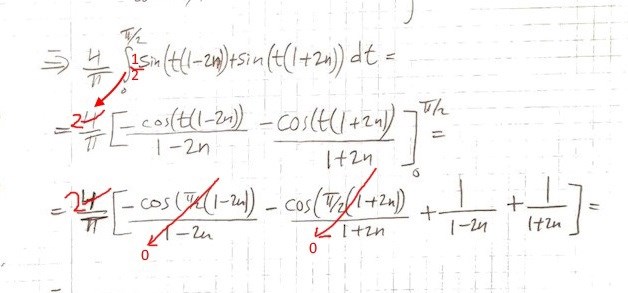 ⇒ 4/π ∫₀^{π/2} 1/2 sin(t(1-2n)+sin(t(1+2n)) dt =
= 2 4/π [ -cos(t(1-2n))/1-2n -cos(t(1+2n))/1+2n ]₀^{π/2} =
= 2 4/π [ -cos(π/2(1-2n))/1-2n - cos(π/2(1+2n))/1+2n + 1/1-2n + 1/1+2n ] =
0 0